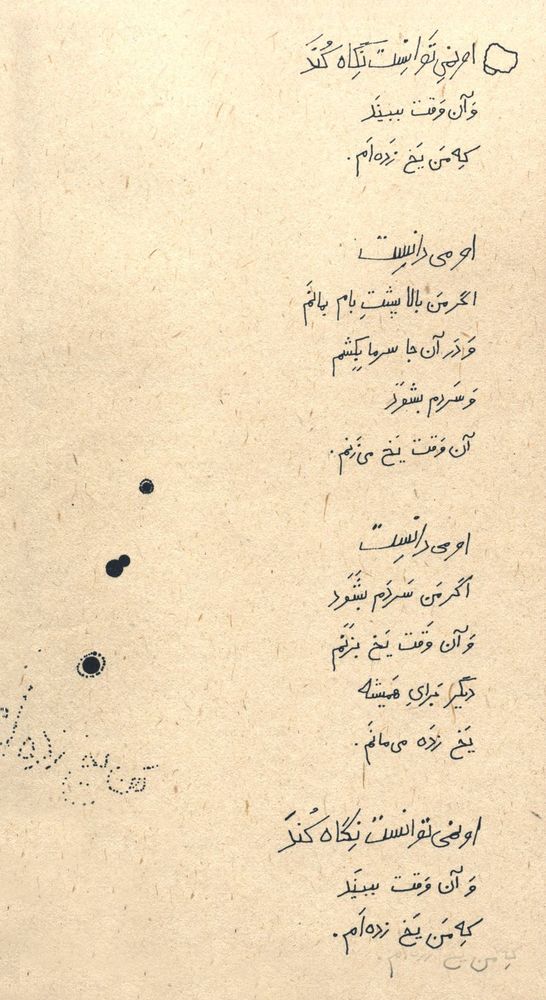 او نمی‌تَوانِست نِگاه کُنَد
وَ آن وَقت ببینَد
کِه مَن یَخ زَده‌اَم.
او می‌دانِست
اگر مَن بالا پُشتِ بام بمانَم
وَ دَر آن جا سرما بِکِشَم
وَ سَردم بشوَد
آن وَقت یَخ می‌زَنم.
او می‌دانِست
اَگر مَن سَردَم بشَوَد
وَ آن وَقت یَخ بزَنَم
دیگَر بَرایِ هَمیشه
یَخ زَده می‌مانَم.
او نمی‌توانست نِگاه کُنَد
وَ آن وَقت ببینَد
کِه مَن یَخ زده‌اَم.
کِه من یخ زده‌ام.
من یخ زده‌ا